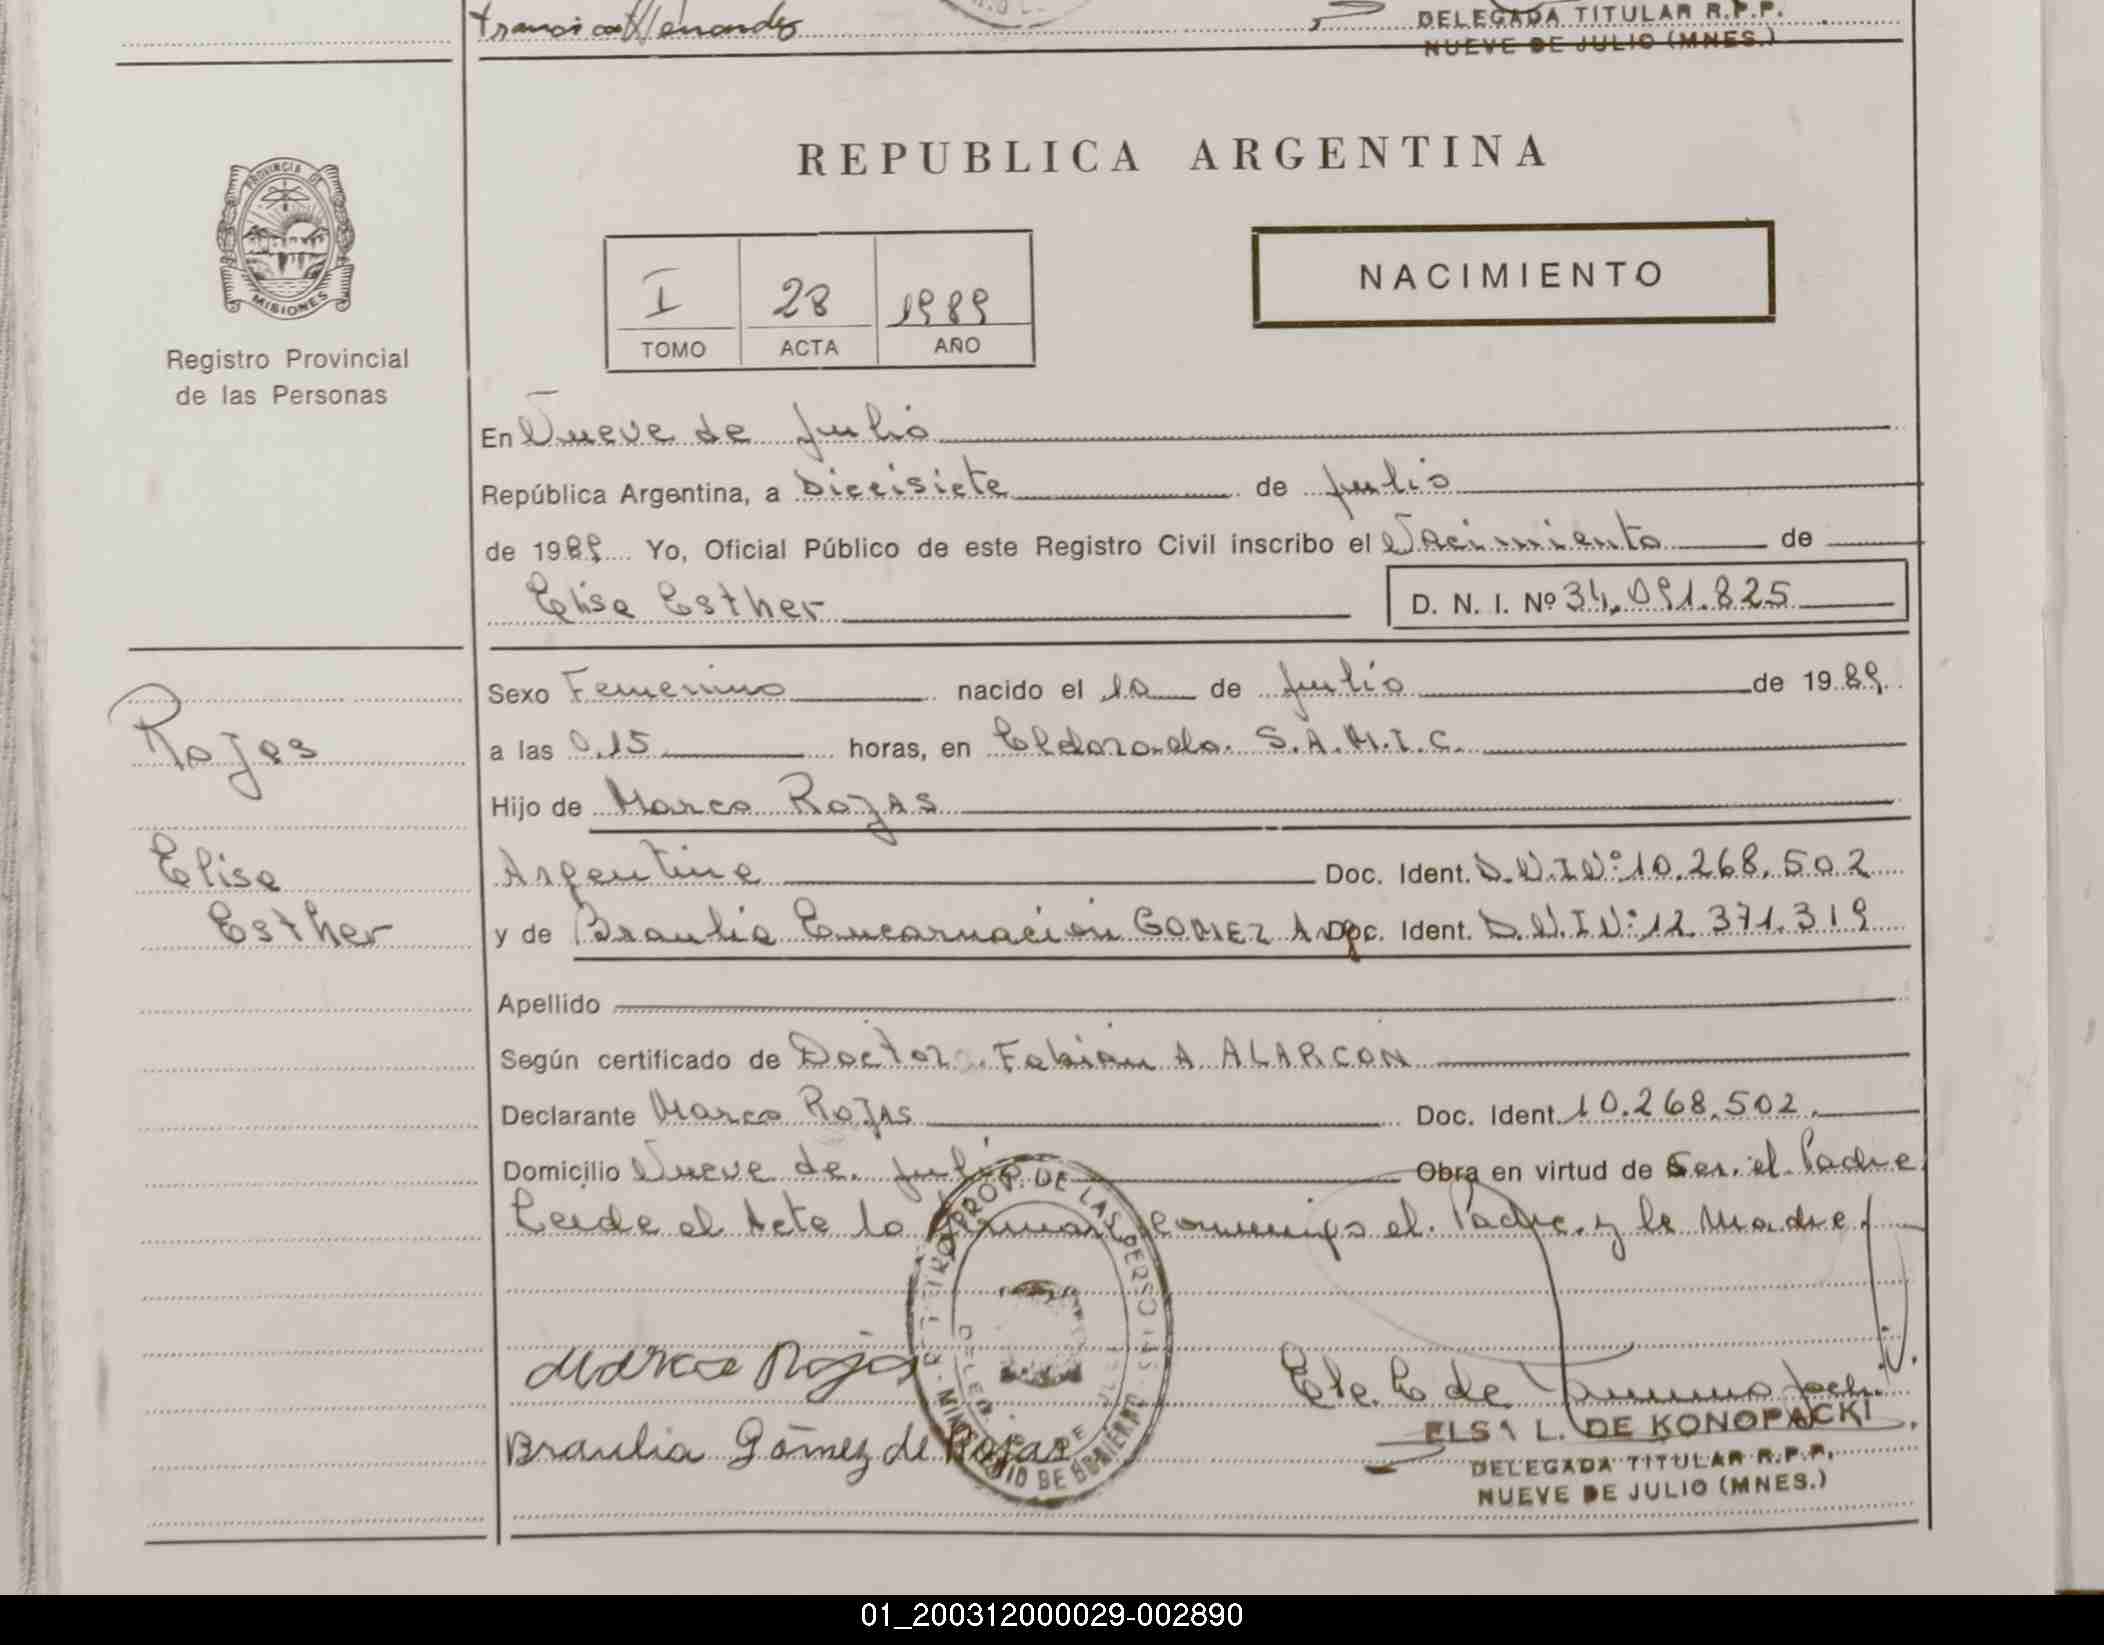 Francisco Hernandez
DELEGADA TITULAR R.P.P.
NUEVE DE JULIO (MNES.)
PROVINCIA DE
MISIONES
Registro Provincial
de las Personas
REPUBLICA ARGENTINA
I 28 1989
TOMO ACTA AÑO
NACIMIENTO
En Nueve de Julio
República Argentina, a Diecisiete de Julio
de 1989 Yo, Oficial Público de este Registro Civil inscribo el Nacimiento de
Elisa Esther D. N. I. Nº 34.091.825
Rojas
Elisa
Esther
Sexo Femenino nacido el 10 de Julio de 1989
a las 0,15 horas, en Eldorado. S.A.M.I.C.
Hijo de Marco ROJAS
Argentina Doc. Ident. D.N.I Nº: 10.268.502
y de Braulia Encarnación GOMEZ Arg Doc. Ident. D.N.I N: 12.371.319
Apellido
Según certificado de Doctor. Fabian A ALARCON
Declarante Marco ROJAS Doc. Ident. 10.268.502.
Domicilio Nueve de Julio Obra en virtud de Ser el Padre
Leida el Acta la firman conmigo el Padre y la Madre
REGISTRO PROV. DE LAS PERSONAS
MINISTERIO DE GOBIERNO
Marco Rojas
Braulia Gómez de Rojas
ELSA L. DE KONOPACKI
DELEGADA TITULAR R.P.P.
NUEVE DE JULIO (MNES.)
01_200312000029-002890